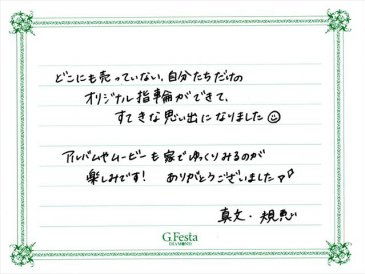 どこにも売っていない、自分たちだけの
オリジナル指輪ができて、
すてきな思い出になりました☺
アルバムやムービーも家でゆっくりみるのが
楽しみです! ありがとうございました♪
真文・規恵
G.Festa
DIAMOND